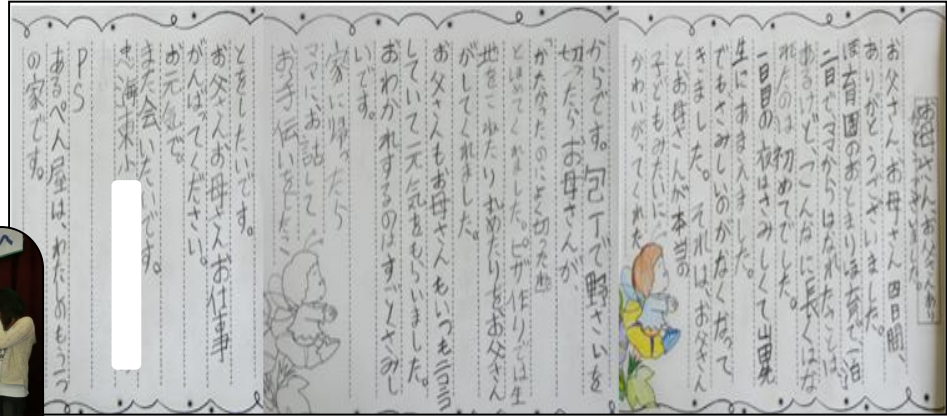 お母さん、お父さんあり
がとうございました。
お父さん、お母さん、四日間、
ありがとうございました。
ほ育園のおとまりほ育で一泊
二日でママからはなれたことは、
あるけど、こんなに長くはな
れたのは初めてでした。
一日目の夜はさみしくて山里先
生にあまえました。
でもさみしいのがなくなって
きました。それはお父さん
とお母さんが本当の
子どもみたいに
かわいがってくれた
からです。包丁で野さいを
切ったらお母さんが
「かたかったのによく切ったね」
とほめてくれました。ピザ作りでは生
地をこねたり丸めたりをお父さん
がしてくれました。
お父さんもお母さんもいつもニコニコ
していて元気をもらいました。
おわかれするのはすごくさみし
いです。
家に帰ったら
ママにお話して
お手伝いをたくさ
とをしたいです。
お父さんお母さんお仕事
がんばってくだだい。
お元気で。
また会いたいです。
PS
あるぺん屋は、わたしのもう一つ
の家です。